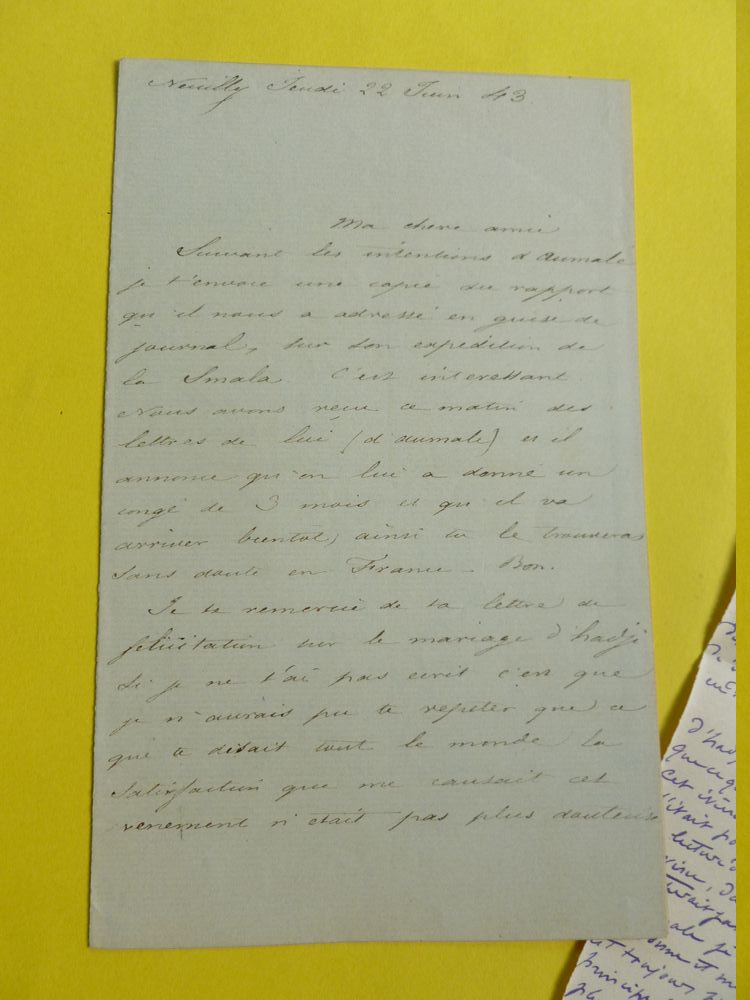 Neuilly Jeudi 22 Juin 43
Ma chere amie
Suivant les intentions d'aumale
je t'envoie une copie du rapport
qu'il nous a adressé en guise de
journal, sur son expedition de
la Smala. C'est interessant.
Nous avons reçu ce matin des
lettres de lui (d'aumale) et il
annonce qu'on lui a donné un
congé de 3 mois et qu'il va
arriver bientot, ainsi tu le trouveras
sans doute en France. Bon.
Je te remercie de ta lettre de
felicitation sur le mariage d'hadji
si je ne t'ai pas ecrit c'est que
je n'aurais pu te repeter que ce
que te disait tout le monde la
satisfaction que me causait cet
evenement n'etait pas plus douteuse
d'had
que ce q
cet évén
n'était p
lettre d
toujours
princip